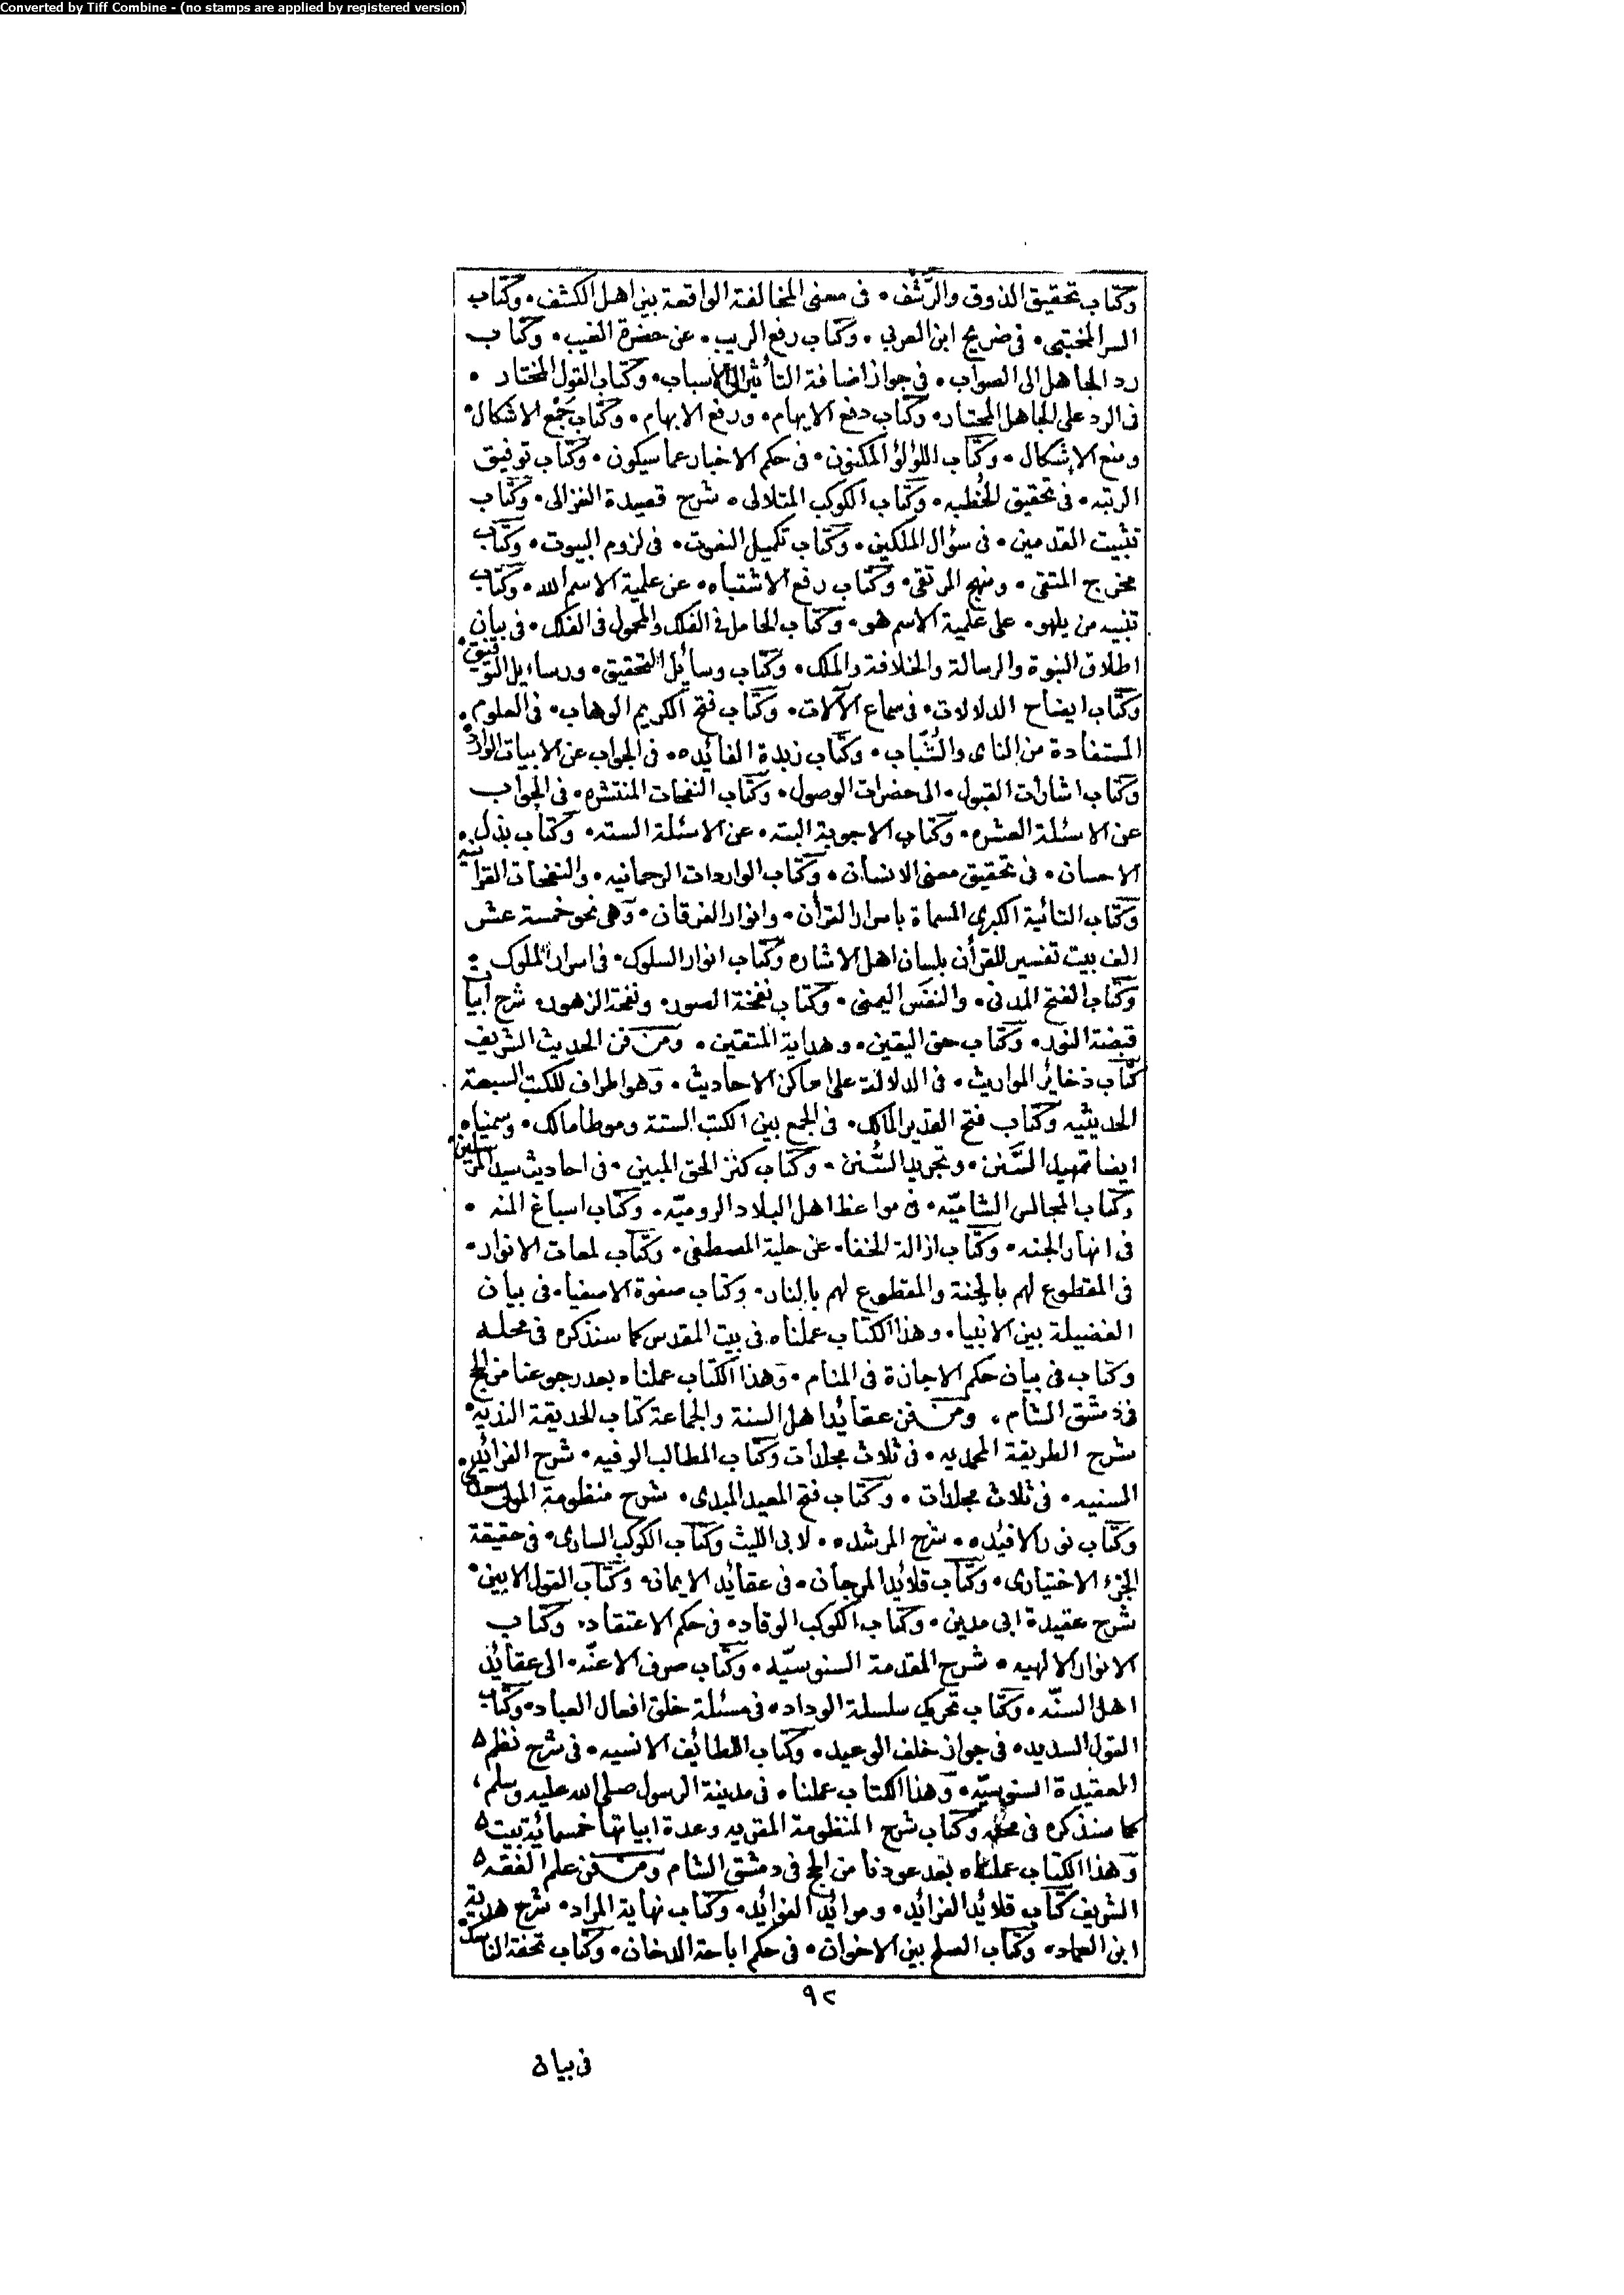 Converted by Tiff Combine - (no stamps are applied by registered version)
وكتاب تحقيق الذوق والرَّشْف • فى معنى المخالفة الواقعة بين اهل الكشف • وكتاب
السر المختبى • فى ضريح ابن العربي • وكتاب رفع الريب • عن حضرة الغيب • وكتاب
رد الجاهل الى الصواب • فى جواز اضافة التأثير الى الاسباب • وكتاب القول المختار •
فى الرد على الجاهل المحتار • وكتاب دفع الايهام • ورفع الابهام • وكتاب جَمْع الاشكال •
ومنع الاشكال • وكتاب اللؤلؤ المكنون • فى حكم الاخبار عما سيكون • وكتاب توفيق
الرتبه • فى تحقيق الخُطبه • وكتاب الكوكب المتلالى • شرح قصيدة الغزالى • وكتاب
تثبيت القدمين • فى سؤال الملكين • وكتاب تكميل النعوت • فى لزوم البيوت • وكتاب
مخرج المتقى • ومنهج المرتقى • وكتاب رفع الاشتباه • عن علمية الاسم الله • وكتاب
تنبيه من يلهو • على علمية الاسم هو • وكتاب الحامل فى الفلك والمحمول فى الفلك • فى بيان •
اطلاق النبوة والرسالة والخلافة والملك • وكتاب وسائل التحقيق • ورسايل التوفيق •
وكتاب ايضاح الدلالات • فى سماع الآلات • وكتاب فتح الكريم الوهاب • فى العلوم •
المستفادة من الناى والشبّاب • وكتاب زبدة الفائده • فى الجواب عن الابيات الوارده
وكتاب اشارات القبول • الى حضرات الوصول • وكتاب النفحات المنتشره • فى الجواب
عن الاسئلة العشره • وكتاب الاجوبة البته • عن الاسئلة السته • وكتاب بذل •
الاحسان • فى تحقيق معنى الانسان • وكتاب الواردات الرحمانيه • والنفحات القرآنيه
وكتاب التائية الكبرى المسماة باسرار القرأن • وانوار الفرقان • وهى نحو خمسة عشر
الف بيت تفسير للقرأن بلسان اهل الاشاره وكتاب انوار السلوك • فى اسرار الملوك :
وكتاب الفتح المدنى • والنفَس اليمنى • وكتاب نفخة الصور • ونفحة الزهور • شرح أبيات
قبضة النور • وكتاب حق اليقين • وهداية المتقين • ومن فن الحديث الشريف
كتاب ذخائر المواريث • فى الدلالة على اماكن الاحاديث • وهو اطراف للكتب السبعة
الحديثيه وكتاب فتح القدير المالك • فى الجمع بين الكتب الستة وموطا مالك • وسميناه
ايضا تمهيد السَّنن • وتجريد السُّنن • وكتاب كنز الحق المبين • فى احاديث سيد المرسلين •
وكتاب المجالس الشاميّه • فى مواعظ اهل البلاد الروميّه • وكتاب اسباغ المنه •
فى انهار الجنه • وكتاب ازالة الخفا • عن حلية المصطفى • وكتاب لمعات الانوار •
فى المقطوع لهم بالجنة والمقطوع لهم بالنار • وكتاب صفوة الاصفيا • فى بيان
الفضيلة بين الانبيا • وهذا الكتاب عملناه فى بيت المقدس كما سنذكره فى محله
وكتاب فى بيان حكم الاجازة فى المنام • وهذا الكتاب عملناه بعد رجوعنا من الحج
فى دمشق الشام • ومن فن عقائد اهل السنة والجماعة كتاب الحديقة النديه •
شرح الطريقة المحمديه • فى ثلاث مجلدات وكتاب المطالب الوفيه • شرح الفرائد •
السنيه • فى ثلاث مجلدات • وكتاب فتح المعيد المبدى • شرح منظومة المولى سعدى
وكتاب نور الافئده • شرح المرشده • لابى الليث وكتاب الكوكب السارى • فى حقيقة
الجزء الاختيارى • وكتاب قلائد المرجان • فى عقائد الايمان • وكتاب القول الابين •
شرح عقيدة ابى مدين • وكتاب الكوكب الوقاد • فى حكم الاعتقاد • وكتاب
الانوار الالهيه • شرح المقدمة السنوسيّه • وكتاب صرف الاعنّه • الى عقائد
اهل السنّه • وكتاب تحريك سلسلة الوداد • فى مسئلة خلق افعال العباد • وكتاب
القول السديد • فى جواز خلف الوعيد • وكتاب اللطائف الانسيه • فى شرح نظم ه
العقيدة السنوسيّه • وهذا الكتاب عملناه فى مدينة الرسول صلى الله عليه وسلم ،
كما سنذكره فى محله وكتاب شرح المنظومة المقريه وعدة ابياتها خمسمائة بيت ه
وهذا الكتاب عملناه بعد عودنا من الحج فى دمشق الشام ومن فن علم الفقه ه
الشريف كتاب قلائد الفرائد • وموائد الفوائد • وكتاب نهاية المراد • شرح هدية
ابن العماد • وكتاب الصلح بين الاخوان • فى حكم اباحة الدخان • وكتاب تحفة الناسك •
٩٢
فى بيان